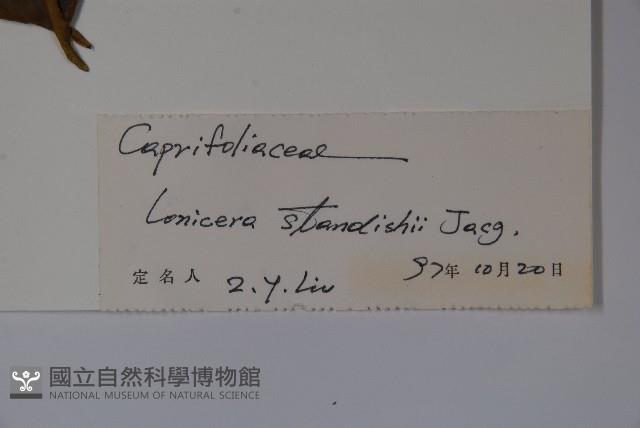 Caprifoliaceae
Lonicera standishii Jacq.
97年 10月20日
定名人 Z.Y.Liu
國立自然科學博物館
NATIONAL MUSEUM OF NATURAL SCIENCE